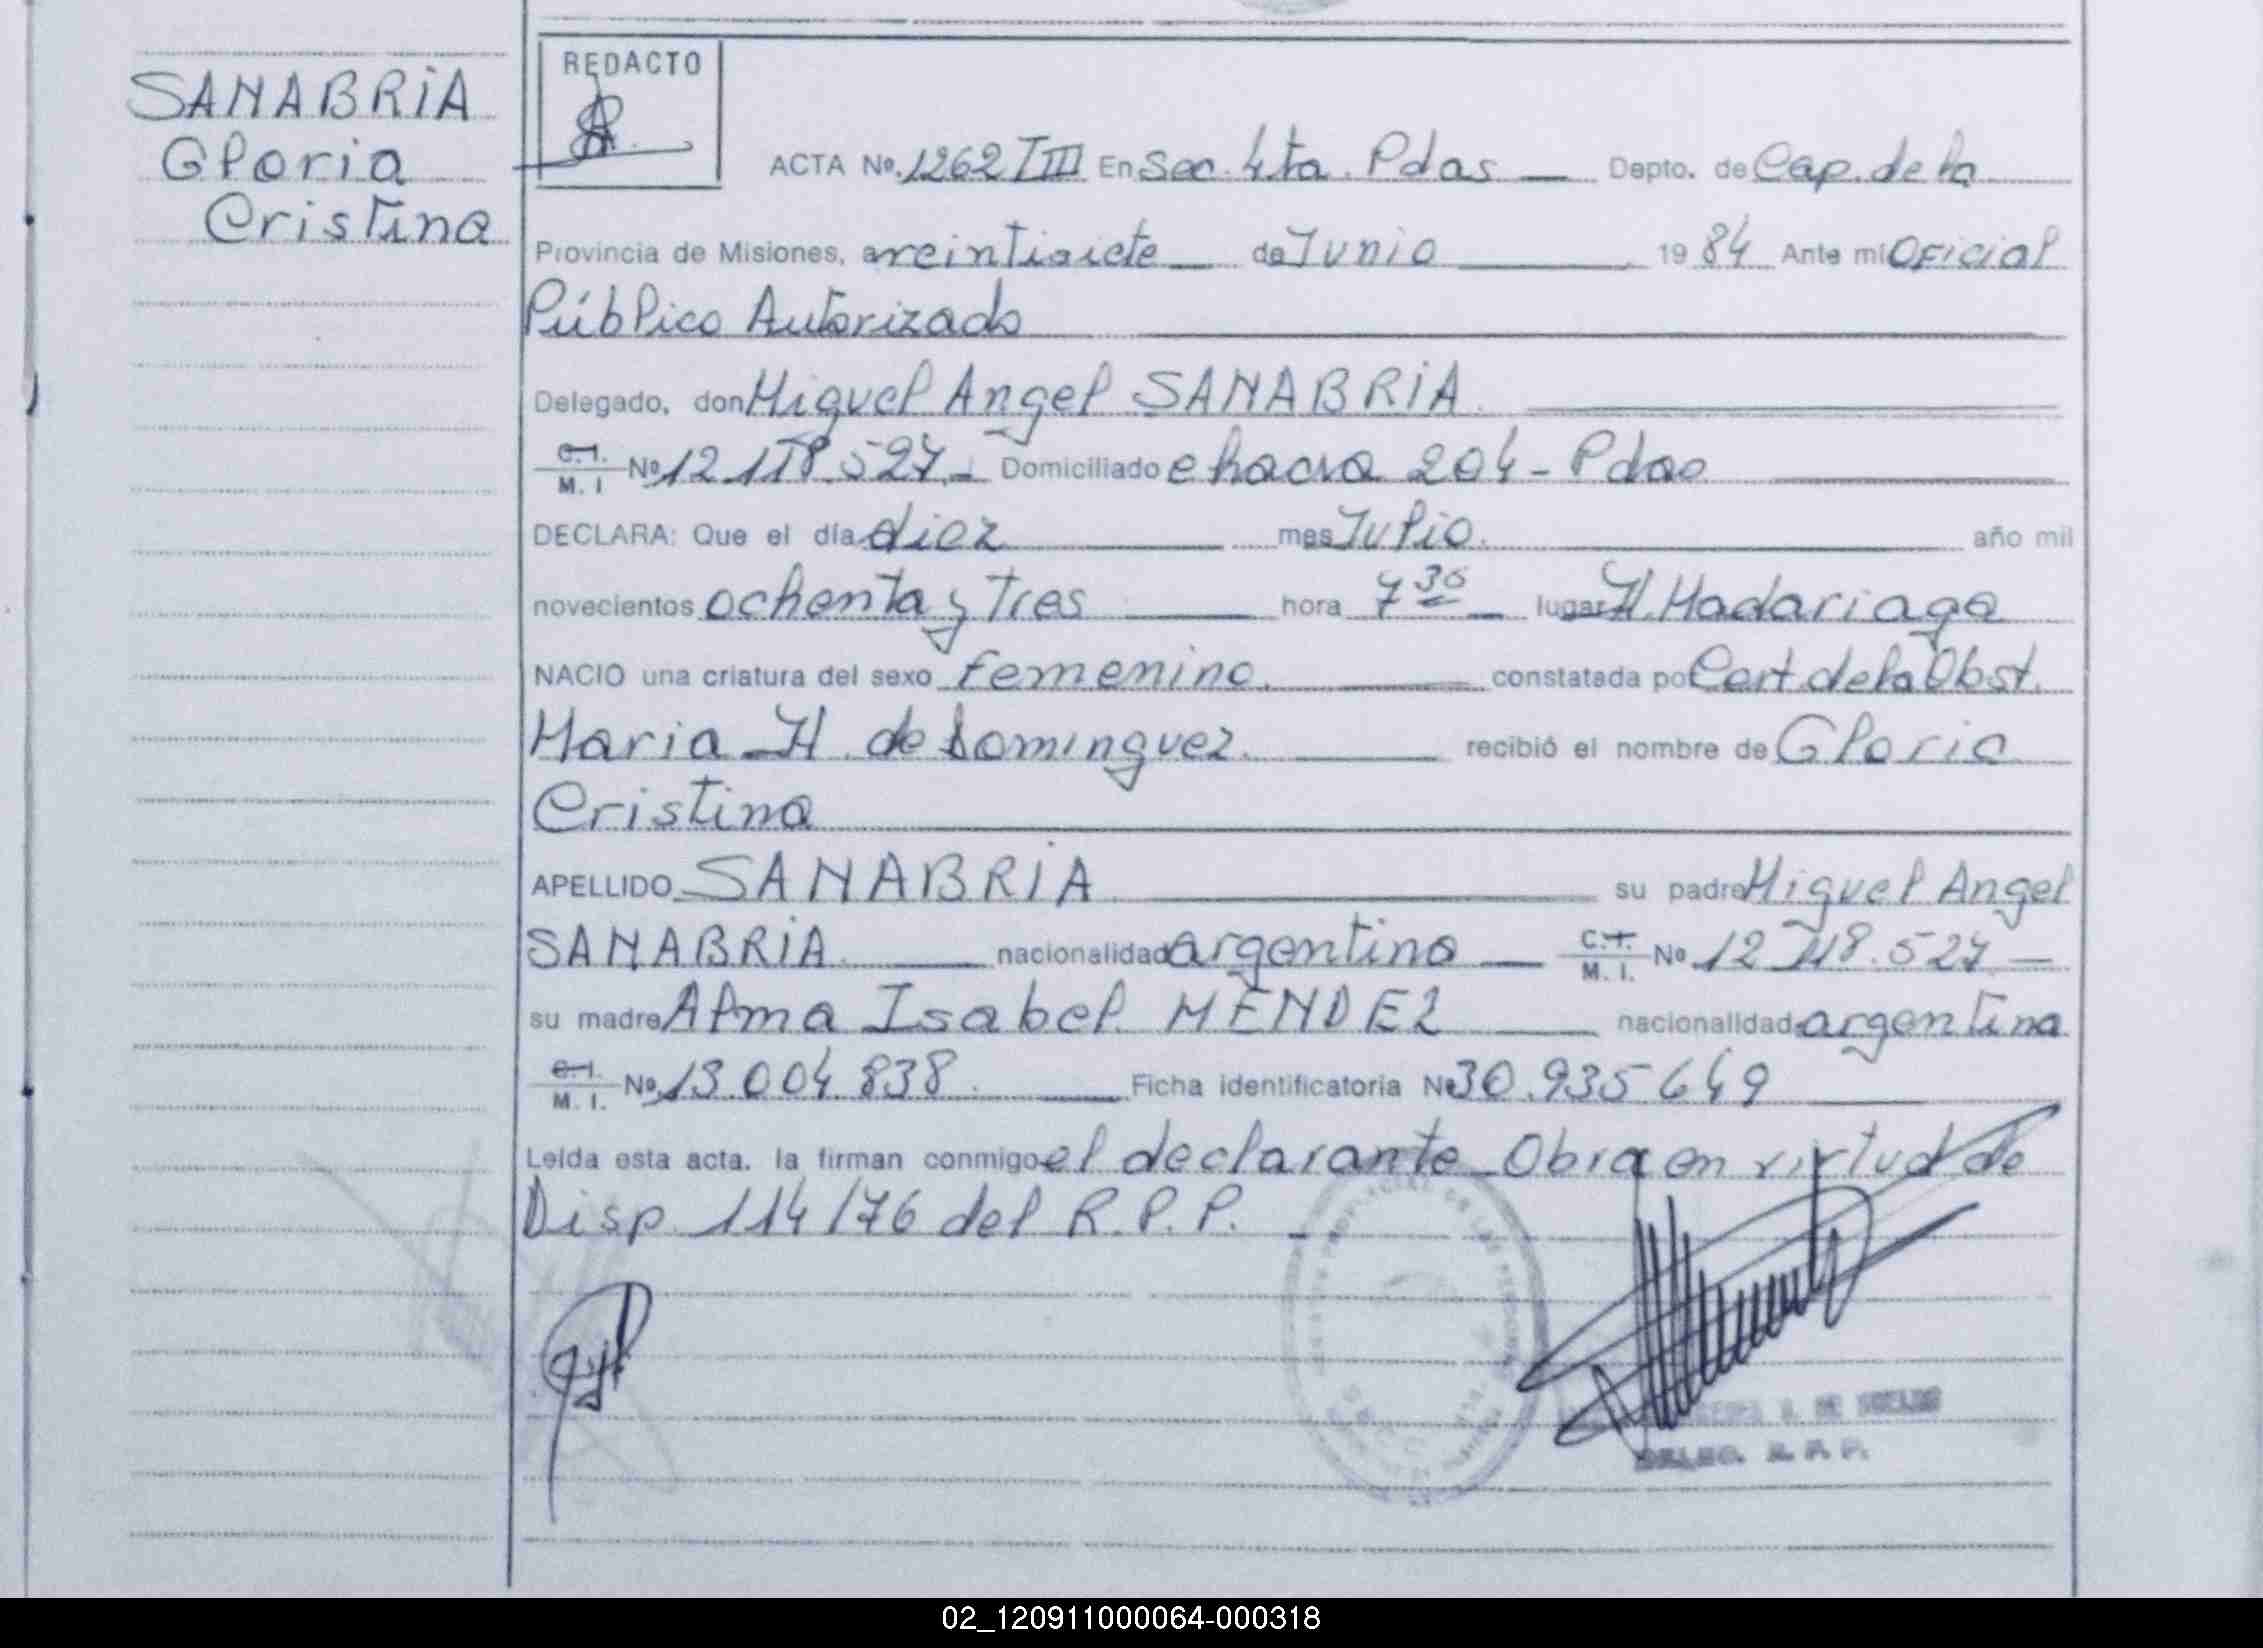 SANABRIA
Gloria
Cristina
REDACTO
ACTA Nº 1262 T III En Sec. 4ta. Pdas Depto. de Cap. de la
Provincia de Misiones, a veintisiete de Junio 1984 Ante mí Oficial
Público Autorizado
Delegado, don Miguel Angel SANABRIA.
C.I. M. I Nº 12.118.527.- Domiciliado chacra 204 - Pdas
DECLARA: Que el día diez mes Julio. año mil
novecientos ochenta y tres hora 7 30 lugar H. Madariaga
NACIO una criatura del sexo femenino. constatada por Cert. de la Obst.
Maria H. de Dominguez. recibió el nombre de Gloria
Cristina
APELLIDO SANABRIA su padre Miguel Angel
SANABRIA. nacionalidad argentino C.I. M. I. Nº 12.118.527 -
su madre Alma Isabel MENDEZ nacionalidad argentina
C.I. M. I. Nº 13.004.838. Ficha identificatoria Nº 30.935.649
Leída esta acta. la firman conmigo el declarante. Obra en virtud de
Disp. 114/76 del R.P.P. -
DELEG. R. P. P.
02_120911000064-000318